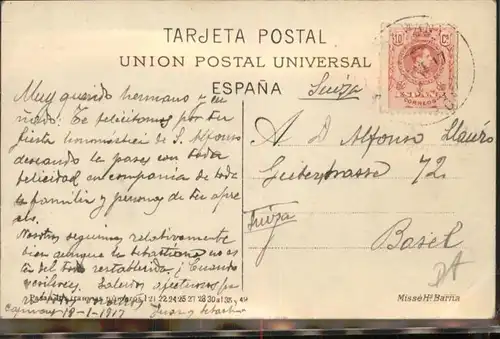 TARJETA POSTAL
UNION POSTAL UNIVERSAL
ESPAÑA
Suiza
10 Cs
CORREOS
Muy querido hermano y cu
ñado: Te felicitamos por tu
fiesta onomástica de S. Alfonso
deseando la pases con toda
felicidad en compañia de toda
la familia y personas de tu apre
cio.
Nosotros seguimos relativamente
bien aunque la Sebastiana no es
tá del todo restablecida. ¡Cuando
Saludos afectuosos
18-1-1917 Juan y Sebastiana
A D Alfonso Llauró
72.
Suiza
Basel
21 22 24 25 27 28 30 al 35 y 49
Missé Hs Barna